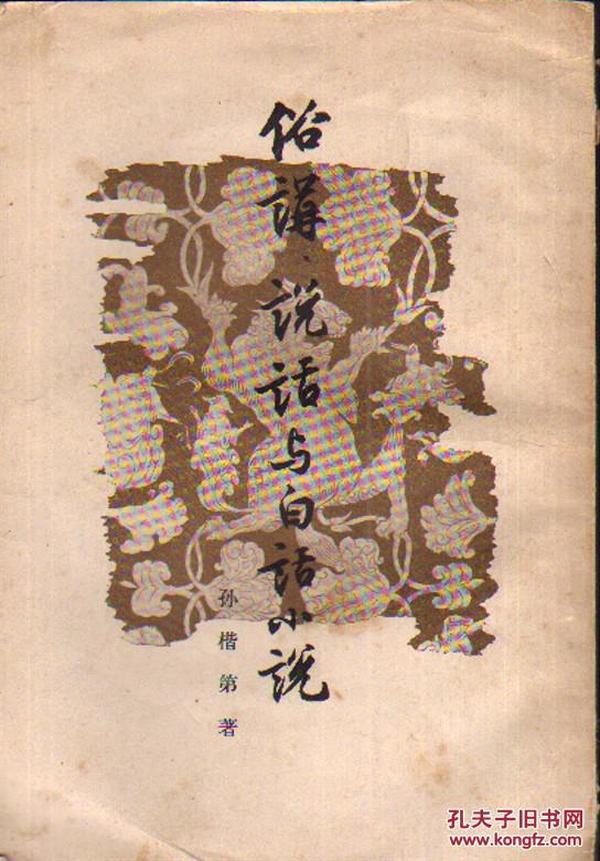 俗講、説話与白话小説
孙楷第著
孔夫子旧书网
www.kongfz.com